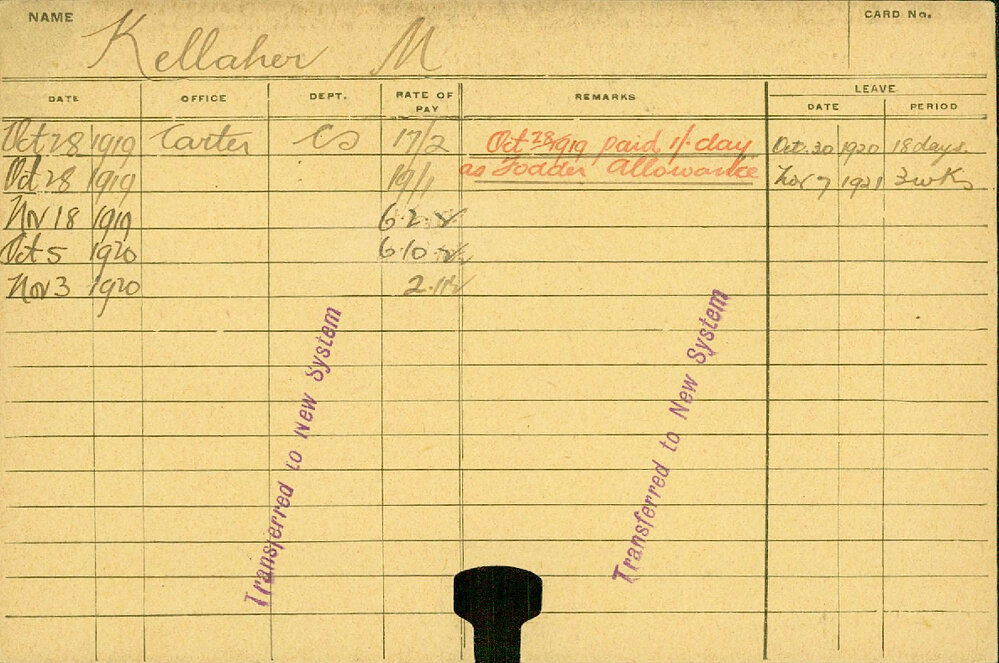 NAME Kellaher M CARD No.
DATE OFFICE DEPT. RATE OF PAY REMARKS LEAVE
DATE PERIOD
Oct 28 1919 Carter CS 17/2 Oct 28/1919 paid 1/- day Oct. 30 1920 18 days.
Oct 28 1919 19/1 as Fodder Allowance Nov 7 1921 3 wks
Nov 18 1919 6.2.
Oct 5 1920 6.10.
Nov 3 1920 2.11
Transferred to New System
Transferred to New System